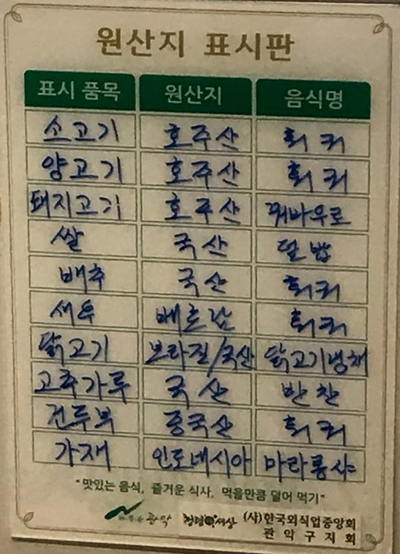 원산지 표시판
표시 품목 원산지 음식명
소고기 호주산 훠궈
양고기 호주산 훠궈
돼지고기 호주산 꿔바우로
쌀 국산 덮밥
배추 국산 훠궈
새우 베트남 훠궈
닭고기 브라질/국산 닭고기냉채
고추가루 국산 반찬
건두부 중국산 훠궈
가재 인도네시아 마라롱샤
"맛있는 음식, 즐거운 식사. 먹을만큼 덜어 먹기"
관악 (사)한국외식업중앙회
관악구지회